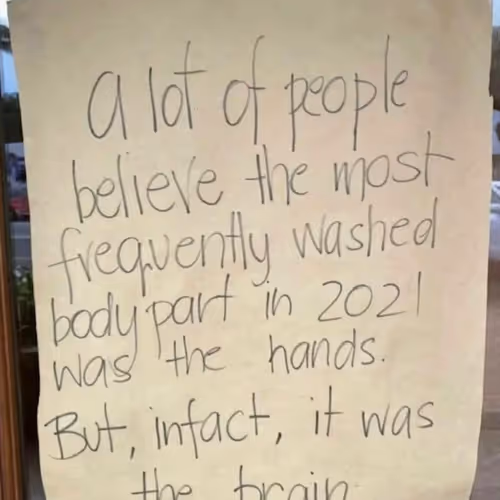 a lot of people
believe the most
frequently washed
body part in 2021
was the hands.
But, infact, it was
the brain